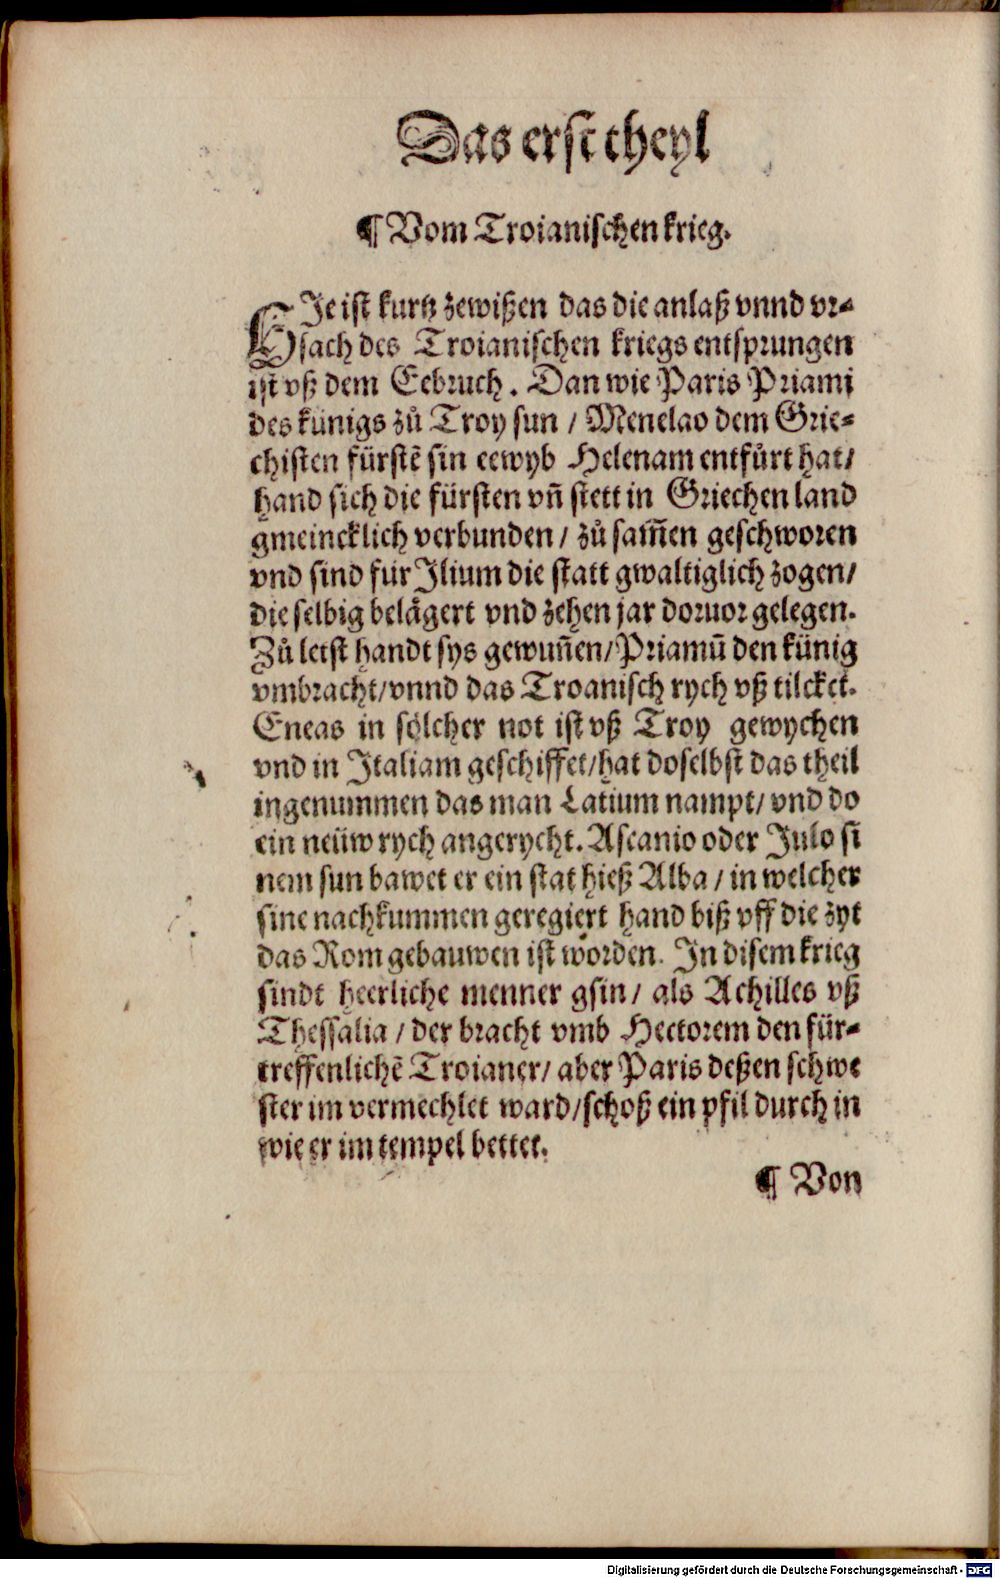 Das erst theyl
¶ Vom Troianischen krieg.
HJe ist kurtz zewißen das die anlaß vnnd vr⸗
sach des Troianischen kriegs entsprungen
ist vß dem Eebruch. Dan wie Paris Priami
des künigs zů Troy sun / Menelao dem Grie⸗
chisten fürstē sin eewyb Helenam entfůrt hat/
hand sich die fürsten vn̄ stett in Griechen land
gmeincklich verbunden / zů sam̄en geschworen
vnd sind für Jlium die statt gwaltiglich zogen/
die selbig belägert vnd zehen jar doruor gelegen.
Zů letst handt sys gewun̄en/Priamū den künig
vmbracht/vnnd das Troanisch rych vß tilcket.
Eneas in sölcher not ist vß Troy gewychen
vnd in Jtaliam geschiffet/hat doselbst das theil
ingenummen das man Latium nampt/ vnd do
ein neüw rych angerycht. Ascanio oder Julo sī
nem sun bawet er ein stat hieß Alba / in welcher
sine nachkummen geregiert hand biß vff die zyt
das Rom gebauwen ist worden. Jn disem krieg
sindt heerliche menner gsin/ als Achilles vß
Thessalia / der bracht vmb Hectorem den für⸗
treffenlichē Troianer/ aber Paris deßen schwe
ster im vermechlet ward/schoß ein pfil durch in
wie er im tempel bettet.
¶ Von
Digitalisierung gefördert durch die Deutsche Forschungsgemeinschaft - DFG